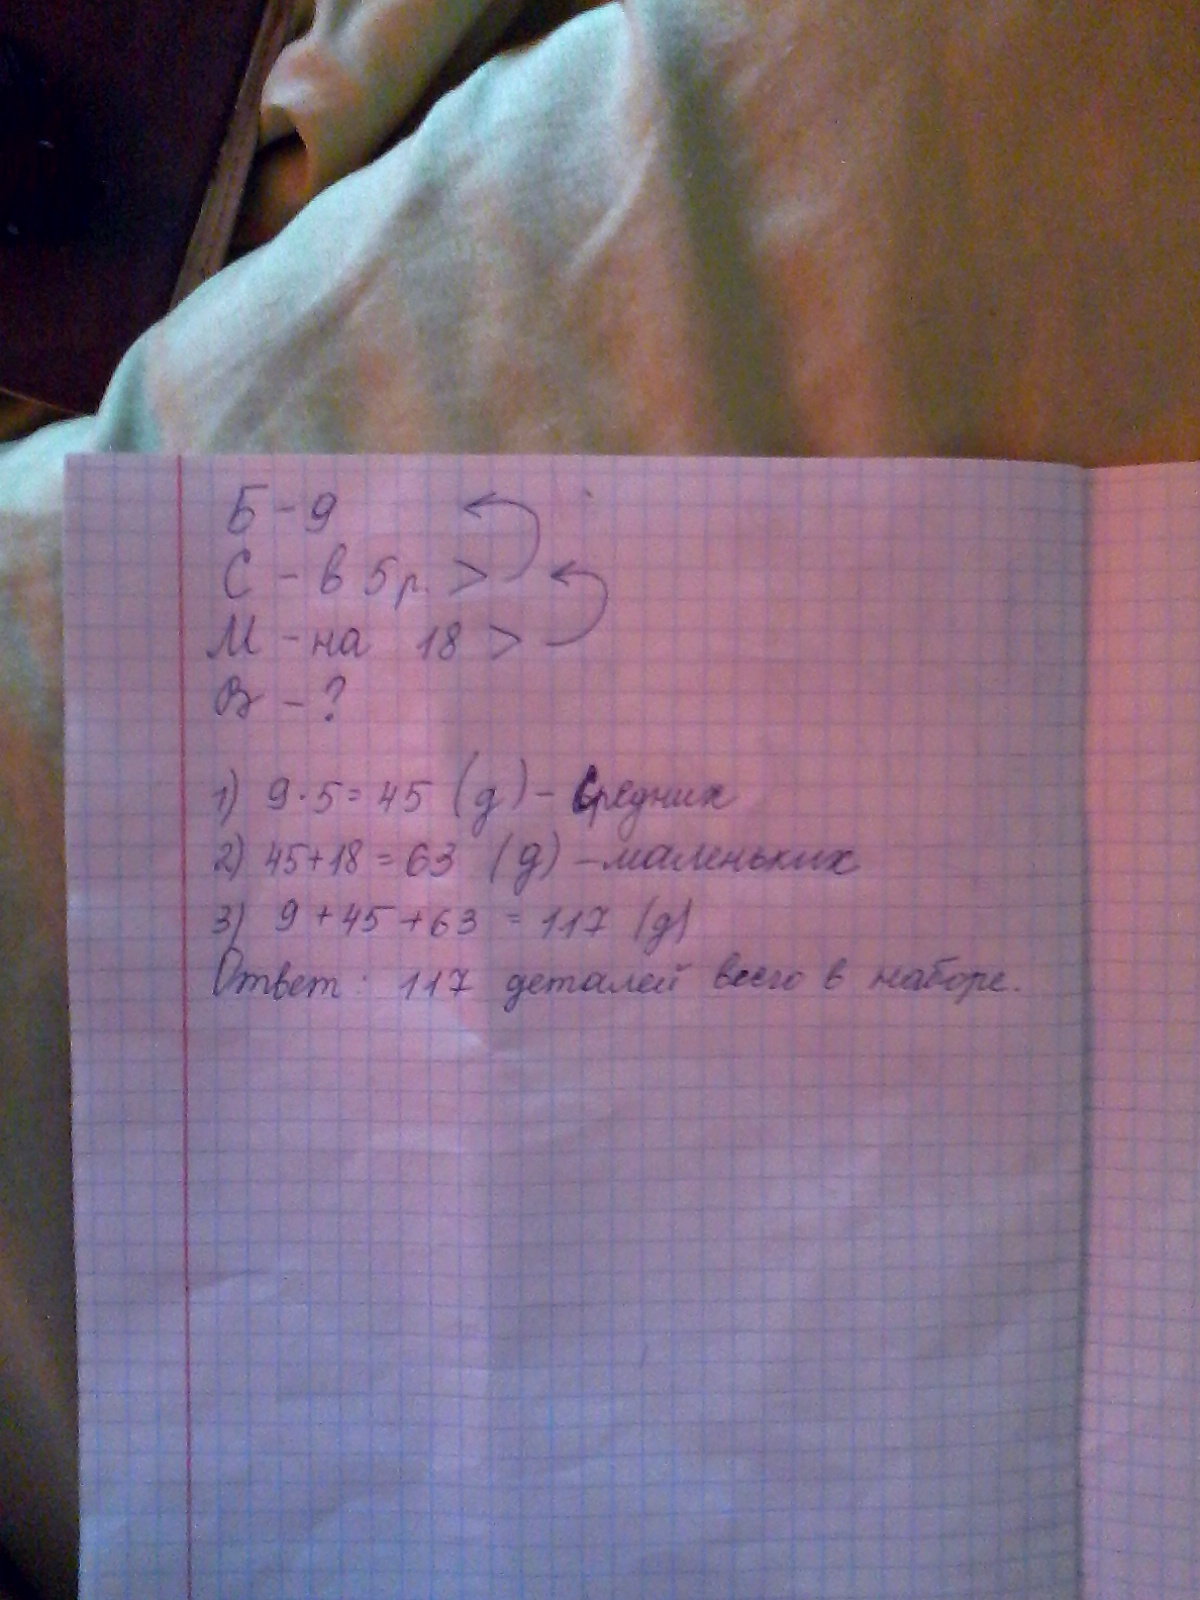 Б - 9
С - в 5 р. >
М - на 18 >
В - ?
1) 9·5=45 (д) - средних
2) 45+18=63 (д) - маленьких
3) 9+45+63 = 117 (д)
Ответ: 117 деталей всего в наборе.